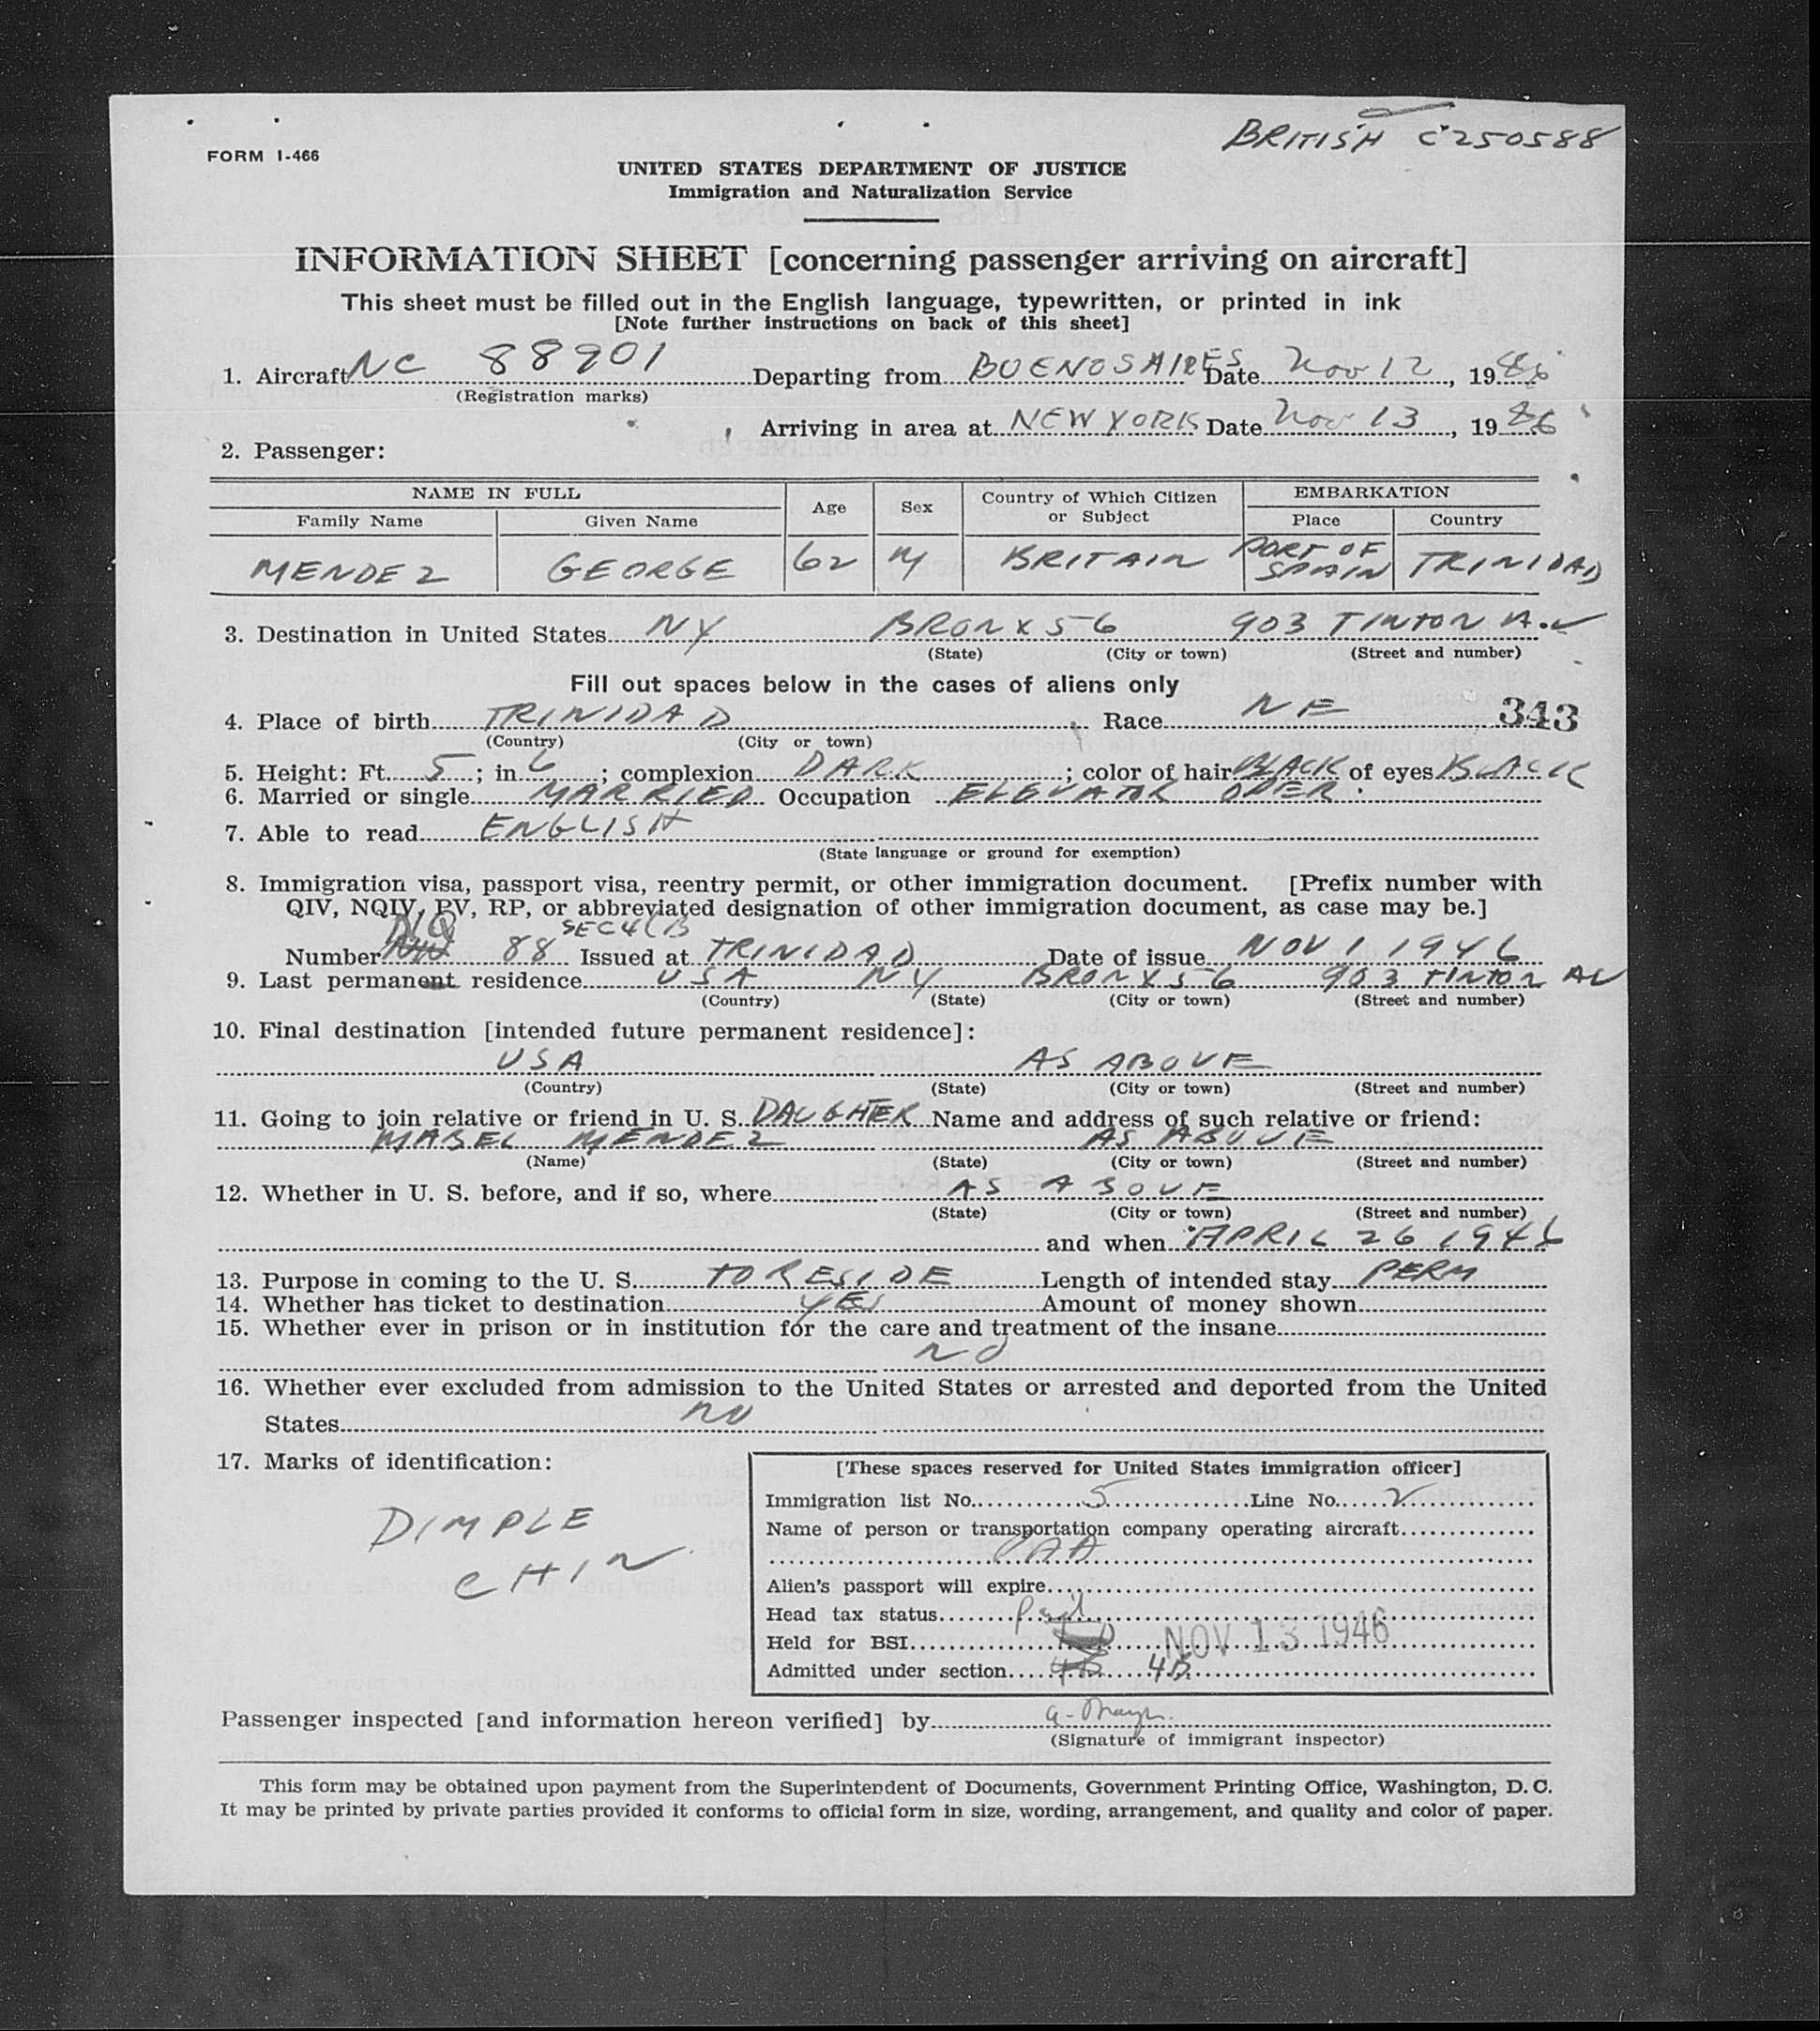 BRITISH C250588
FORM I-466
UNITED STATES DEPARTMENT OF JUSTICE
Immigration and Naturalization Service
INFORMATION SHEET [concerning passenger arriving on aircraft]
This sheet must be filled out in the English language, typewritten, or printed in ink
[Note further instructions on back of this sheet]
1. Aircraft NC 88901 Departing from BUENOS AIRES Date Nov 12, 1946
(Registration marks)
Arriving in area at NEW YORK Date Nov 13, 1946
2. Passenger:
NAME IN FULL Age Sex Country of Which Citizen or Subject EMBARKATION
Family Name Given Name Place Country
MENDEZ GEORGE 62 M BRITAIN PORT OF SPAIN TRINIDAD
3. Destination in United States NY BRONX 56 903 TINTON AV
(State) (City or town) (Street and number)
Fill out spaces below in the cases of aliens only
4. Place of birth TRINIDAD Race NE 343
(Country) (City or town)
5. Height: Ft. 5; in 6; complexion DARK; color of hair BLACK of eyes BLACK
6. Married or single MARRIED Occupation ELEVATOR OPER.
7. Able to read ENGLISH
(State language or ground for exemption)
8. Immigration visa, passport visa, reentry permit, or other immigration document. [Prefix number with
QIV, NQIV, PV, RP, or abbreviated designation of other immigration document, as case may be.]
NQ SEC 4(B
Number 88 Issued at TRINIDAD Date of issue NOV 1 1946
9. Last permanent residence USA NY BRONX 56 903 TINTON AV
(Country) (State) (City or town) (Street and number)
10. Final destination [intended future permanent residence]:
USA AS ABOVE
(Country) (State) (City or town) (Street and number)
11. Going to join relative or friend in U. S. DAUGHTER Name and address of such relative or friend:
MABEL MENDEZ AS ABOVE
(Name) (State) (City or town) (Street and number)
12. Whether in U. S. before, and if so, where AS ABOVE
(State) (City or town) (Street and number)
and when APRIL 26 1946
13. Purpose in coming to the U. S. TO RESIDE Length of intended stay PERM
14. Whether has ticket to destination YES Amount of money shown
15. Whether ever in prison or in institution for the care and treatment of the insane
NO
16. Whether ever excluded from admission to the United States or arrested and deported from the United
States NO
17. Marks of identification:
DIMPLE
CHIN
[These spaces reserved for United States immigration officer]
Immigration list No. 5 Line No. 2
Name of person or transportation company operating aircraft
PAA
Alien's passport will expire
Head tax status Paid
Held for BSI NOV 13 1946
Admitted under section 4B
Passenger inspected [and information hereon verified] by
(Signature of immigrant inspector)
This form may be obtained upon payment from the Superintendent of Documents, Government Printing Office, Washington, D. C.
It may be printed by private parties provided it conforms to official form in size, wording, arrangement, and quality and color of paper.